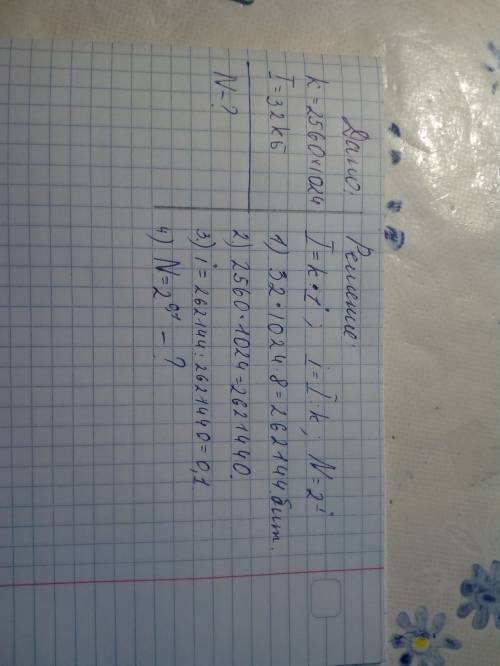 Дано:
k=2560×1024
I=32кб
N=?
Решение:
I=k•i; i=I:k; N=2^i
1) 32•1024•8=262144бит.
2) 2560•1024=2621440.
3) i=262144:2621440=0,1.
4) N=2^0,1 – ?